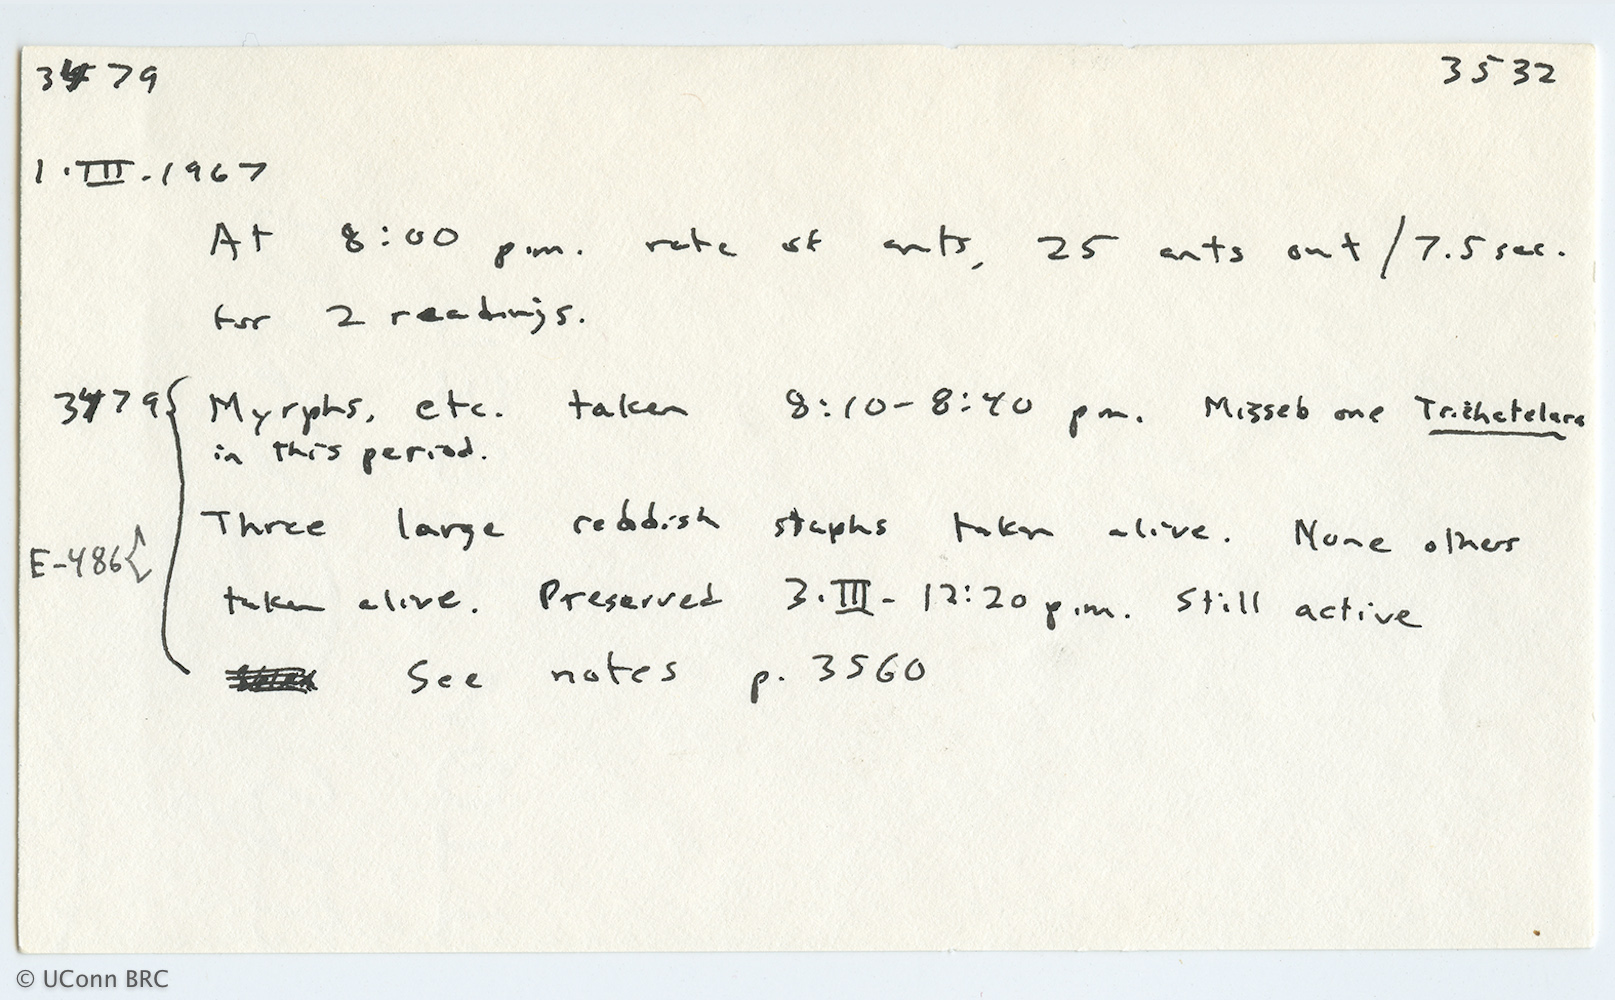 3479 3532
1.III.1967
At 8:00 p.m. rate of ants, 25 ants out/7.5 sec.
for 2 readings.
3479 { Myrphs, etc. taken 8:10-8:40 pm. Missed one
in this period.
Three large reddish staphs taken alive. None others
E-486 {
taken alive. Preserved 3.III-12:20 p.m. Still active
See notes p. 3560
© UConn BRC